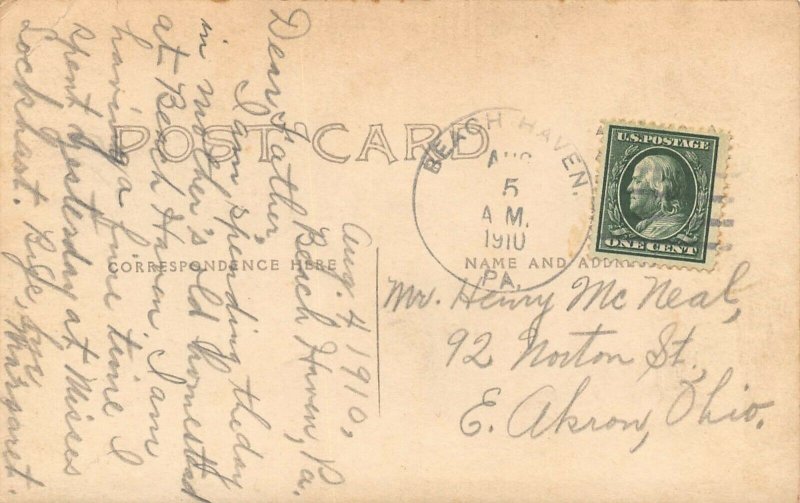 POST CARD
CORRESPONDENCE HERE
NAME AND ADD
BEACH HAVEN.
AUG
5
A M.
1910
PA.
U.S. POSTAGE
ONE CENT
Aug. 4, 1910,
Beach Haven, Pa.
Dear Father,
I am spending the day
in mother's old homestead
at Beach Haven. I am
having a fine time. I
spent yesterday at Misses
Lockhart. Bye, bye
Margaret.
Mr. Henry Mc Neal,
92 Norton St.,
E. Akron, Ohio.